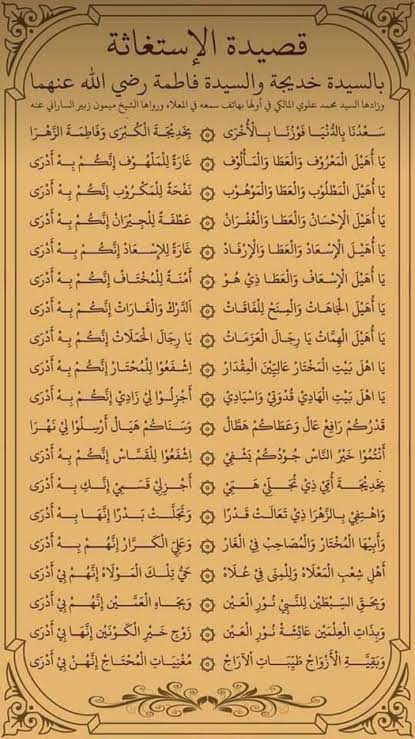 قصيدة الإستغاثة
بالسيدة خديجة والسيدة فاطمة رضي الله عنهما
وزادها السيد محمد علوي المالكي في أولها بهاتف سمعه في المعلاة ورواها الشيخ ميمون زبير الساراني عنه
سَعْدُنَا بِالدُّنْيَا فَوْزُنَا بِالْأُخْرَى ۞ بِخَدِيْجَةَ الْكُبْرَى وَفَاطِمَةَ الزَّهْرَا
يَا أُهَيْلَ الْمَعْرُوفْ وَالْعَطَا وَالْمَأْلُوفْ ۞ غَارَةْ لِلْمَلْهُوفْ إِنَّكُمْ بِهْ أَدْرَى
يَا أُهَيْلَ الْمَطْلُوبْ وَالْعَطَا وَالْمَوْهُوبْ ۞ نَفْحَةْ لِلْمَكْرُوبْ إِنَّكُمْ بِهْ أَدْرَى
يَا أُهَيْلَ الْإِحْسَانْ وَالْعَطَا وَالْغُفْرَانْ ۞ عَطْفَةْ لِلْجِيْرَانْ إِنَّكُمْ بِهْ أَدْرَى
يَا أُهَيْلَ الْإِسْعَادْ وَالْعَطَا وَالْإِرْفَادْ ۞ غَارَةْ لِلإِسْعَادْ إِنَّكُمْ بِهْ أَدْرَى
يَا أُهَيْلَ الْإِسْعَافْ وَالْعَطَا ذِي هُوْ ۞ أَمْنَةْ لِلْمُخْتَافْ إِنَّكُمْ بِهْ أَدْرَى
يَا أُهَيْلَ الْجَاهَاتْ وَالْمِنَحْ لِلْفَاقَاتْ ۞ اَلدَّرَكْ وَالْغَارَاتْ إِنَّكُمْ بِهْ أَدْرَى
يَا أُهَيْلَ الْهِمَّاتْ يَا رِجَالَ الْعَزَمَاتْ ۞ يَا رِجَالَ الْحَمَلَاتْ إِنَّكُمْ بِهْ أَدْرَى
يَا اهْلَ بَيْتِ الْمُخْتَارْ عَالِيِيْنَ الْمِقْدَارْ ۞ اِشْفَعُوْا لِلْمُحْتَارْ إِنَّكُمْ بِهْ أَدْرَى
يَا اهْلَ بَيْتِ الْهَادِي قُدْوَتِي وَاسْيَادِي ۞ أَجْزِلُوْا لِي زَادِي إِنَّكُمْ بِهْ أَدْرَى
قَدْرُكُمْ رَافِعْ عَالْ وَعَطَاكُمْ هَطَّالْ ۞ وَسَنَاكُمْ هَيَالْ أَرْسِلُوْا لِي نَهْرَا
أَنْتُمُوْا خَيْرُ النَّاسْ جُوْدُكُمْ يَشْفِي ۞ اِشْفَعُوْا لِلْقَسَّاسْ إِنَّكُمْ بِهْ أَدْرَى
بِخَدِيْجَةْ أُمِّي ذِيْ تُجَلِّي هَمِّي ۞ أَجْزِلِي قَسْمِي إِنَّكِ بِهْ أَدْرَى
وَاهْتِفِي بِالزَّهْرَا ذِي تَعَالَتْ قَدْرًا ۞ وَتَجَلَّتْ بَدْرًا إِنَّهَا بِهْ أَدْرَى
وَأَبِيْهَا الْمُخْتَارْ وَالْمُصَاحِبْ فِي الْغَارْ ۞ وَعَلِيِّ الْكَرَّارْ إِنَّهُمْ بِهْ أَدْرَى
أَهْلِ شِعْبِ الْمَعْلَاهْ وَلِلْمِنَى فِي عُلَاهْ ۞ حَيِّ تِلْكَ الْمَوْلَاهْ إِنَّهُمْ بِيْ أَدْرَى
وَبِحَقِ السِّبْطَيْن لِلنَّبِي نُوْرِ الْعَيْن ۞ وَبِجَاهِ الْعَمَّيْن إِنَّهُمْ بِيْ أَدْرَى
وَبِذَاتِ الْعِلْمَيْن عَائِشَةْ نُوْرِ الْعَيْن ۞ زَوْجِ خَيْرِ الْكَوْنَيْن إِنَّهَا بِيْ أَدْرَى
وَبَقِيَّةِ الْأَزْوَاجْ طَيِّبَاتِ الْآرَاجْ ۞ مُغْنِيَاتِ الْمُحْتَاجْ إِنَّهُنْ بِيْ أَدْرَى